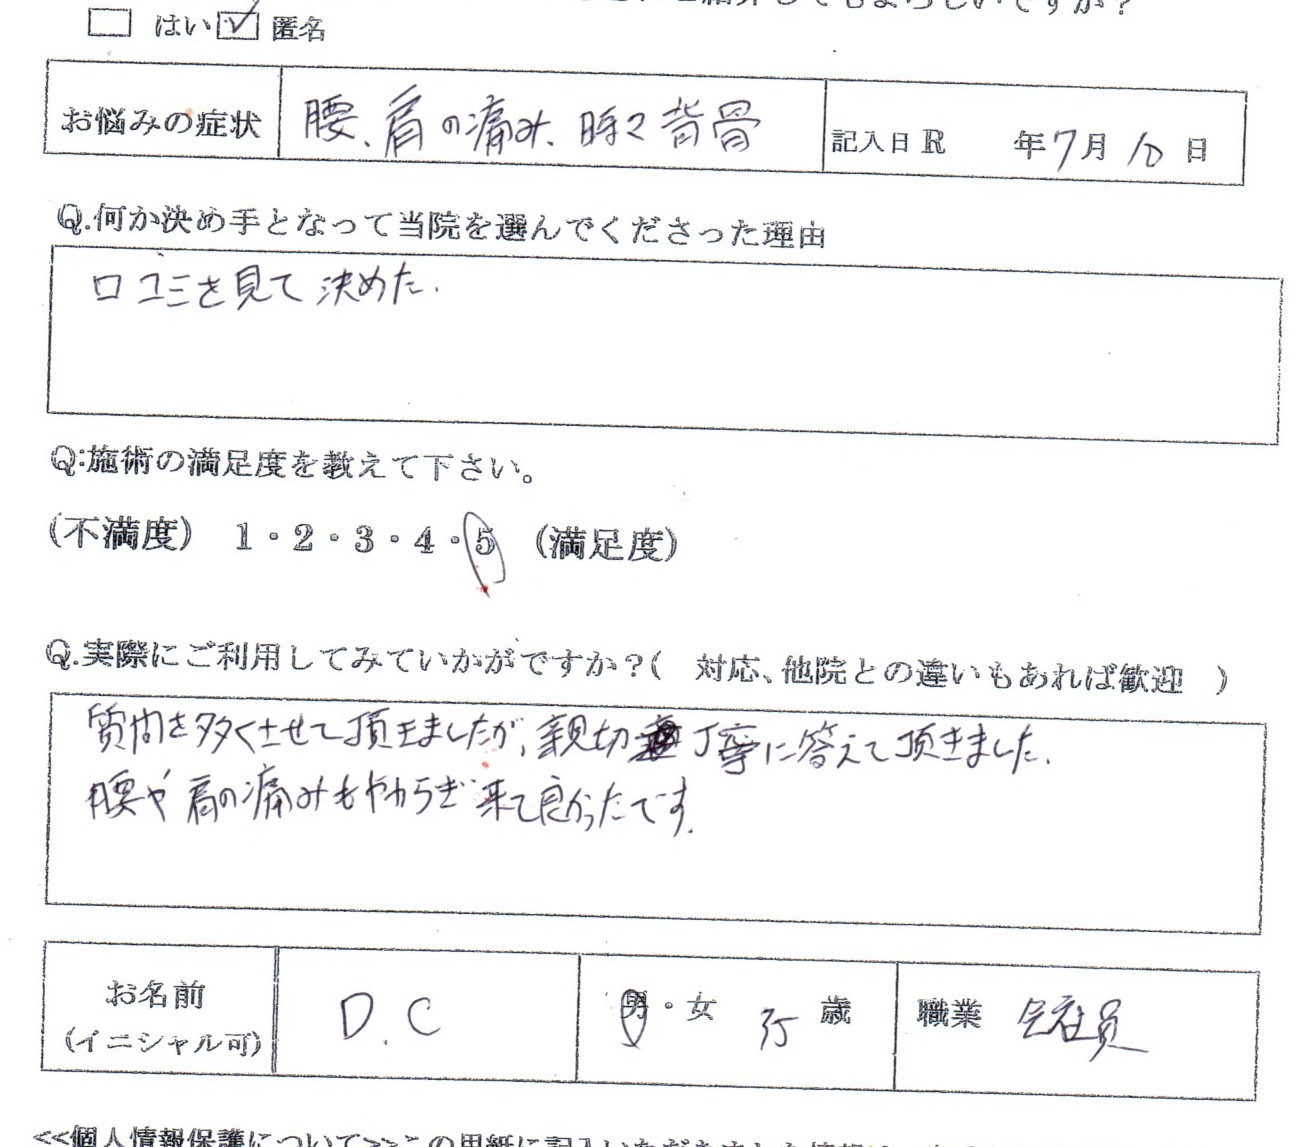 ご紹介してもよろしいですか？
□ はい ☑ 匿名
お悩みの症状 腰、肩の痛み、時々背骨 記入日R 年7月10日
Q.何か決め手となって当院を選んでくださった理由
口コミを見て決めた.
Q:施術の満足度を教えて下さい。
(不満度) 1・2・3・4・5 (満足度)
Q.実際にご利用してみていかがですか？( 対応、他院との違いもあれば歓迎 )
質問を多くさせて頂きましたが、親切 丁寧に答えて頂きました.
腰や肩の痛みもやわらぎ 来て良かったです.
お名前 D.C 男・女 35 歳 職業 会社員
(イニシャル可)
<<個人情報保護について>>この用紙に記入いただきました情報は